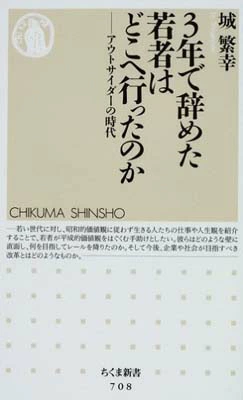 城 繁幸
3年で辞めた
若者は
どこへ行ったのか
──アウトサイダーの時代
CHIKUMA SHINSHO
──若い世代に対し、昭和的価値観に従わず生きる人たちの仕事や人生観を紹
介することで、若者が平成的価値観をはぐくむ手助けとしたい。彼らはどのような壁に
直面し、何を目指してレールを降りたのか。そして今後、企業や社会が目指すべき
改革とはどのようなものか。
ちくま新書
708